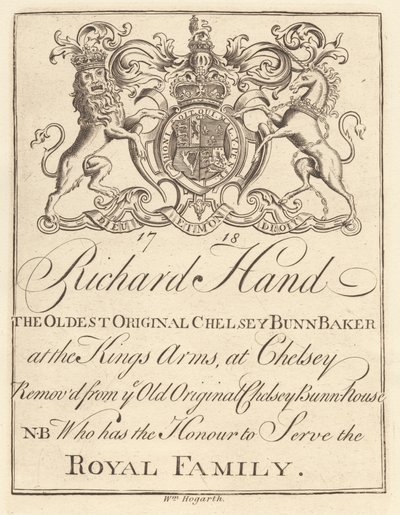 HONI SOIT QUI MAL Y PENSE
DIEU ET MON DROIT
17 18
Richard Hand
THE OLDEST ORIGINAL CHELSEY BUNN BAKER
at the Kings Arms, at Chelsey
Remov'd from ye Old Original Chelsey Bunn-house
N·B Who has the Honour to Serve the
ROYAL FAMILY.
Wm. Hogarth.